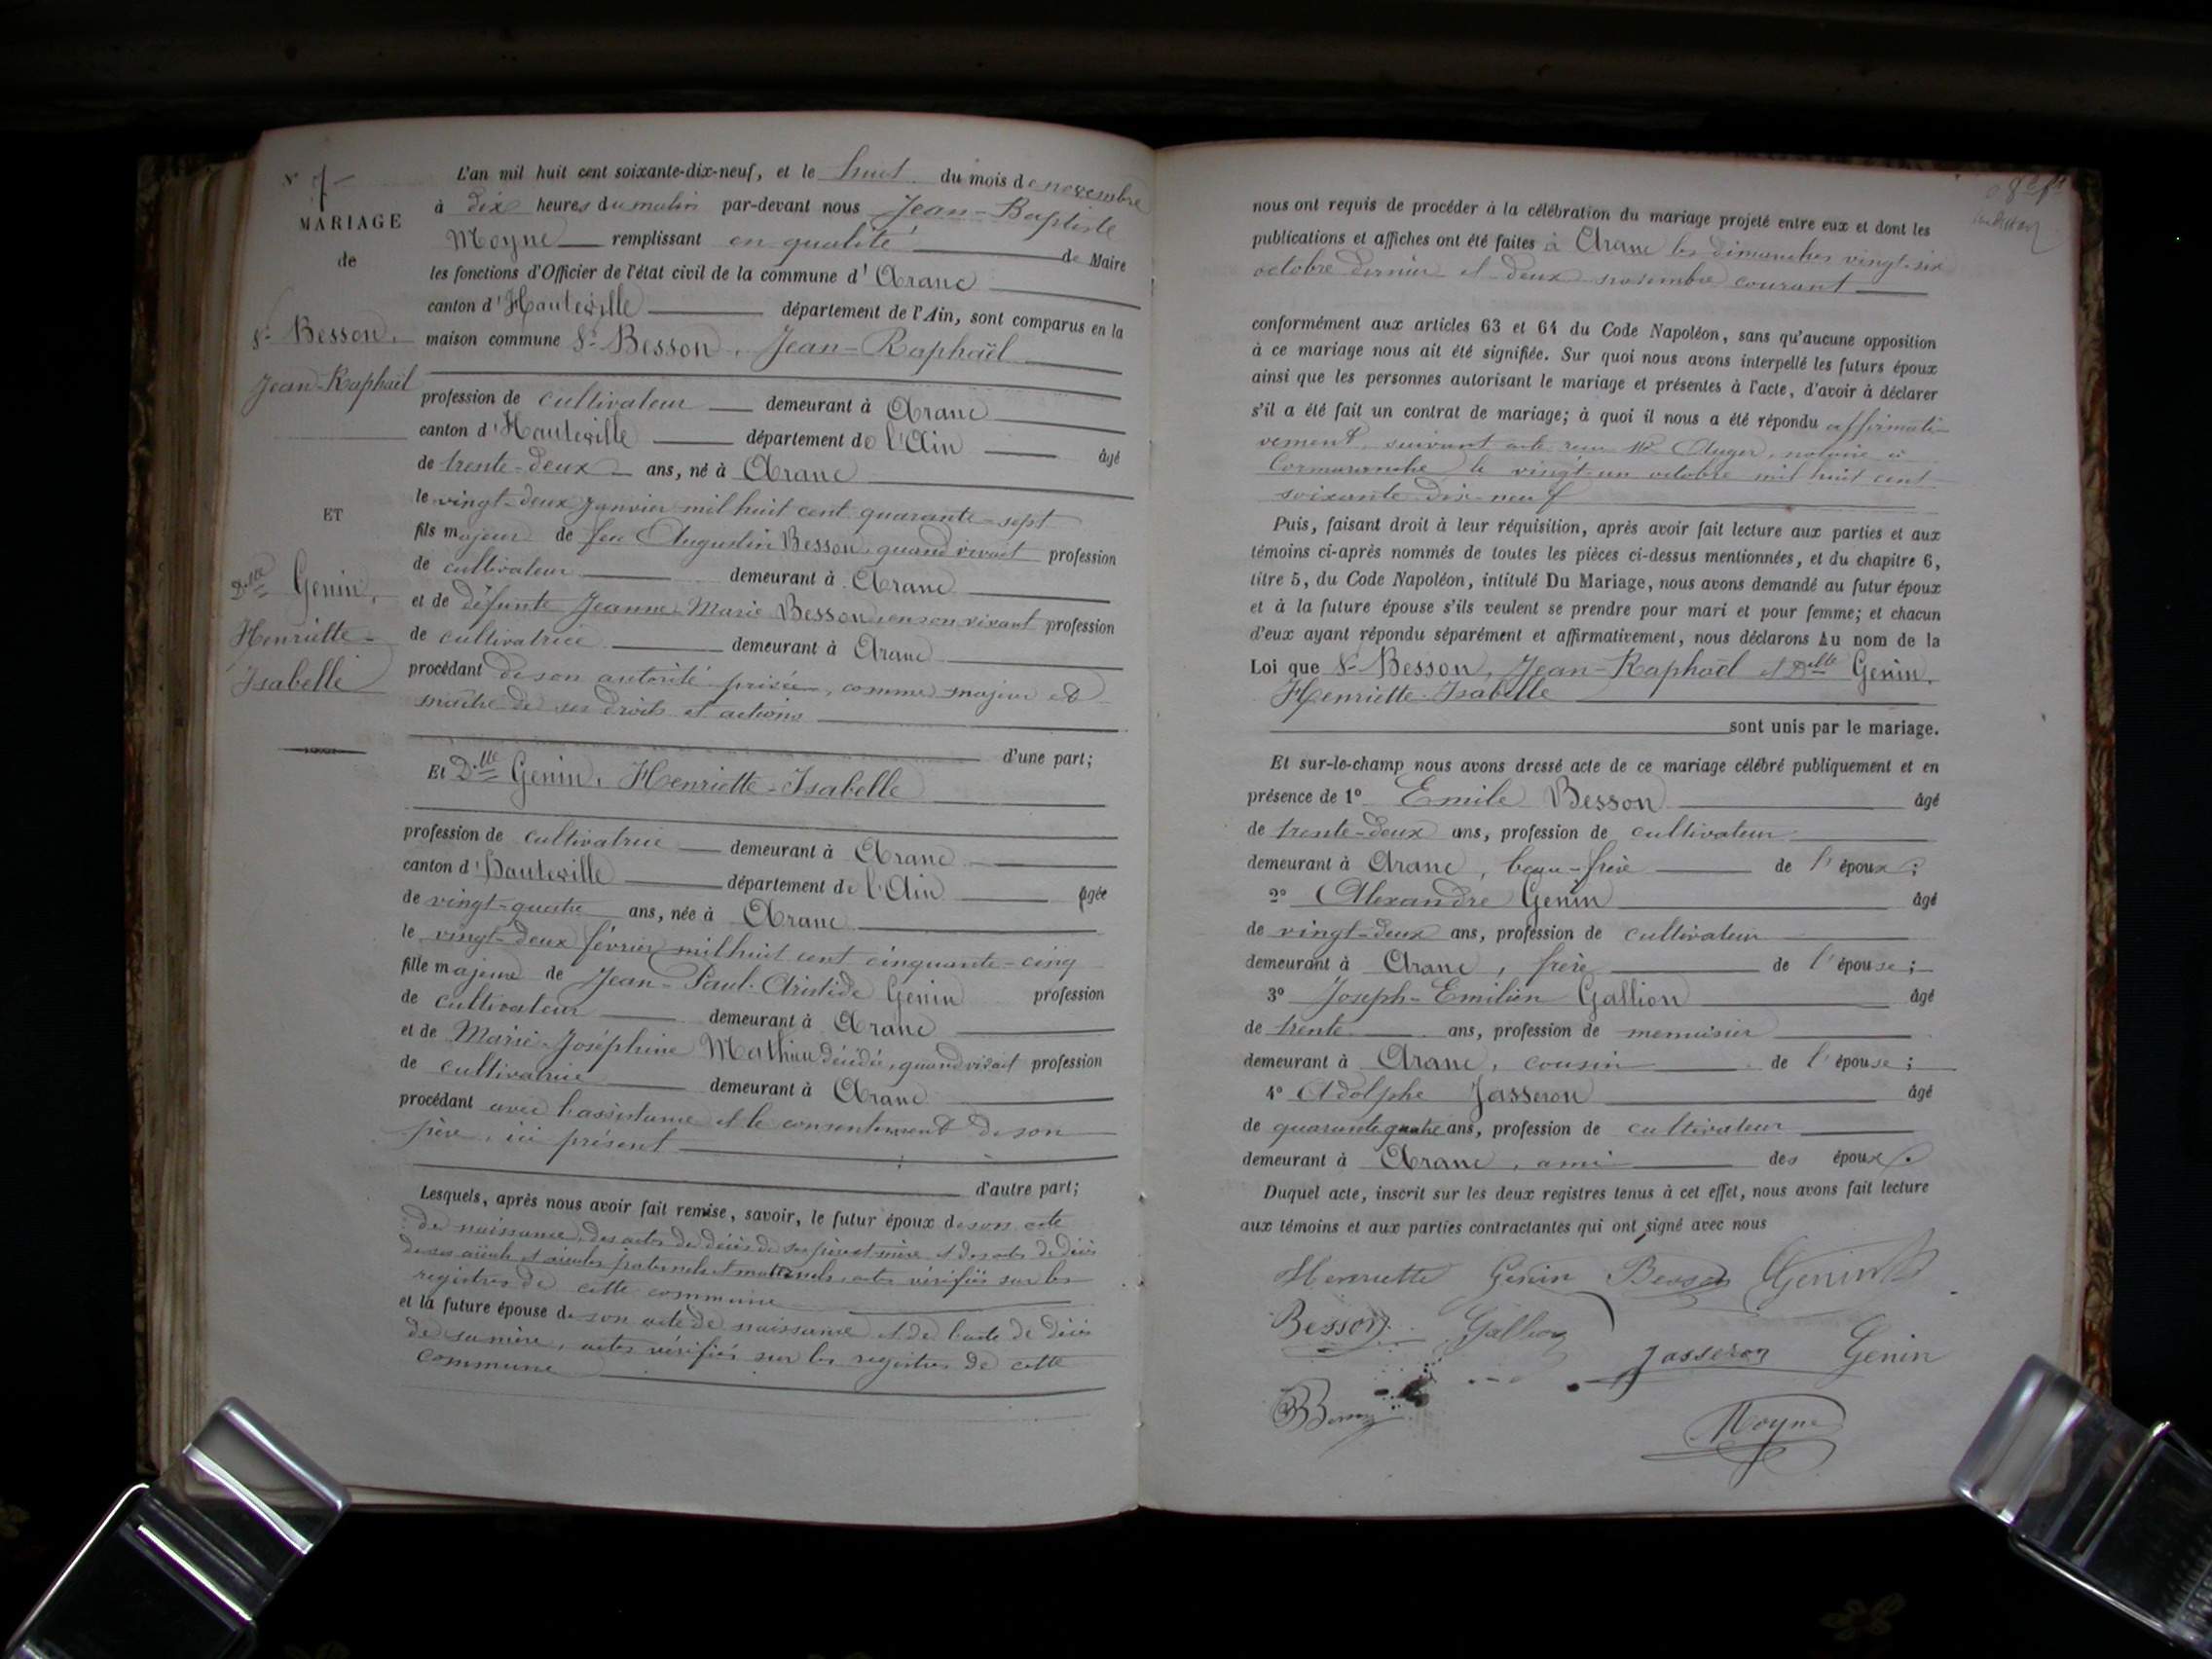 N° 7
MARIAGE
de
Sr Besson,
Jean-Raphaël
ET
Dlle Genin,
Henriette-
Isabelle
L'an mil huit cent soixante-dix-neuf, et le huit du mois de novembre
à dix heures du matin par-devant nous Jean-Baptiste
Moyne remplissant en qualité de Maire
les fonctions d'Officier de l'état civil de la commune d'Aranc
canton d'Hauteville département de l'Ain, sont comparus en la
maison commune Sr Besson, Jean-Raphaël
profession de cultivateur demeurant à Aranc
canton d'Hauteville département de l'Ain âgé
de trente-deux ans, né à Aranc
le vingt-deux janvier mil huit cent quarante-sept
fils majeur de feu Augustin Besson, quand vivait profession
de cultivateur demeurant à Aranc
et de défunte Jeanne-Marie Besson, en son vivant profession
de cultivatrice demeurant à Aranc
procédant de son autorité privée, comme majeur et
maître de ses droits et actions
d'une part;
Et Dlle Genin, Henriette-Isabelle
profession de cultivatrice demeurant à Aranc
canton d'Hauteville département de l'Ain âgée
de vingt-quatre ans, née à Aranc
le vingt-deux février mil huit cent cinquante-cinq
fille majeure de Jean-Paul-Aristide Genin profession
de cultivateur demeurant à Aranc
et de Marie-Joséphine Mathieu décédée, quand vivait profession
de cultivatrice demeurant à Aranc
procédant avec l'assistance et le consentement de son
père, ici présent
d'autre part;
Lesquels, après nous avoir fait remise, savoir, le futur époux de son acte
de naissance, des actes de décès de ses père et mère et des actes de décès
de ses aïeuls et aïeules paternels et maternels, actes vérifiés sur les
registres de cette commune
et la future épouse de son acte de naissance et de l'acte de décès
de sa mère, actes vérifiés sur les registres de cette
commune
nous ont requis de procéder à la célébration du mariage projeté entre eux et dont les
publications et affiches ont été faites à Aranc les dimanches vingt-six
octobre dernier et deux novembre courant
conformément aux articles 63 et 64 du Code Napoléon, sans qu'aucune opposition
à ce mariage nous ait été signifiée. Sur quoi nous avons interpellé les futurs époux
ainsi que les personnes autorisant le mariage et présentes à l'acte, d'avoir à déclarer
s'il a été fait un contrat de mariage; à quoi il nous a été répondu affirmati-
vement, suivant acte reçu Me Auger, notaire à
Cormaranche le vingt-un octobre mil huit cent
soixante dix-neuf
Puis, faisant droit à leur réquisition, après avoir fait lecture aux parties et aux
témoins ci-après nommés de toutes les pièces ci-dessus mentionnées, et du chapitre 6,
titre 5, du Code Napoléon, intitulé Du Mariage, nous avons demandé au futur époux
et à la future épouse s'ils veulent se prendre pour mari et pour femme; et chacun
d'eux ayant répondu séparément et affirmativement, nous déclarons Au nom de la
Loi que Sr Besson, Jean-Raphaël et Dlle Genin,
Henriette-Isabelle
sont unis par le mariage.
Et sur-le-champ nous avons dressé acte de ce mariage célébré publiquement et en
présence de 1° Emile Besson âgé
de trente-deux ans, profession de cultivateur
demeurant à Aranc, beau-frère de l'époux;
2° Alexandre Genin âgé
de vingt-deux ans, profession de cultivateur
demeurant à Aranc, frère de l'épouse;
3° Joseph-Emilien Gallion âgé
de trente ans, profession de menuisier
demeurant à Aranc, cousin de l'épouse;
4° Adolphe Jasseron âgé
de quarante quatre ans, profession de cultivateur
demeurant à Aranc, ami des époux.
Duquel acte, inscrit sur les deux registres tenus à cet effet, nous avons fait lecture
aux témoins et aux parties contractantes qui ont signé avec nous
Henriette Genin Besson Genin
Besson Gallion
Jasseron Genin
Moyne